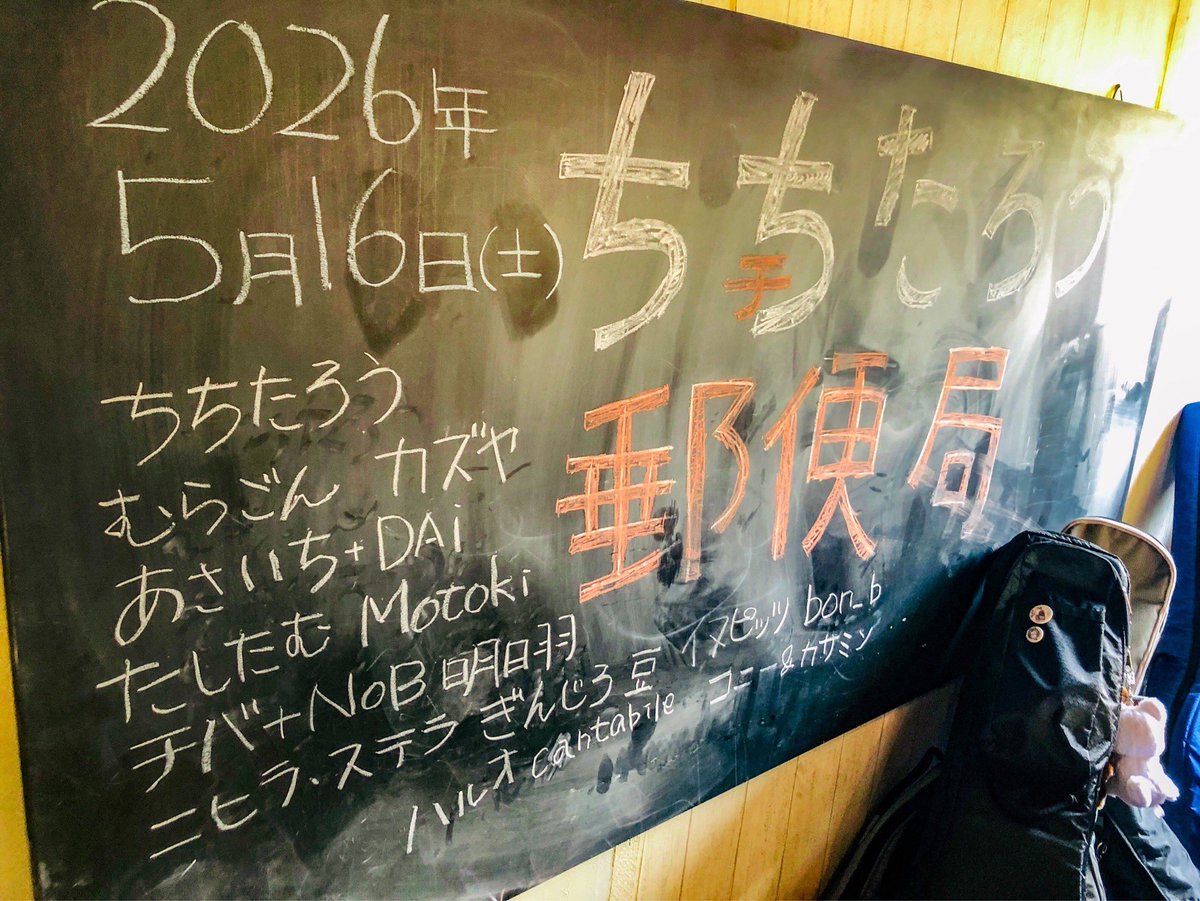 2026年
5月16日(土)
ちちたろう
〒
郵便局
ちちたろう
むらごん カズヤ
あさいち+DAi
たしたむ Motoki
チバ+NoB 明日羽
ニヒラ・ステラ ぎんじろ 豆 イヌピッツ bon_b
ハルオ cantabile コニー&カサミン・・